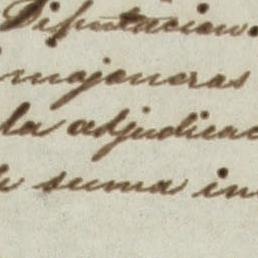 Diputacion.
mojoneras
la adjudicac
suma in